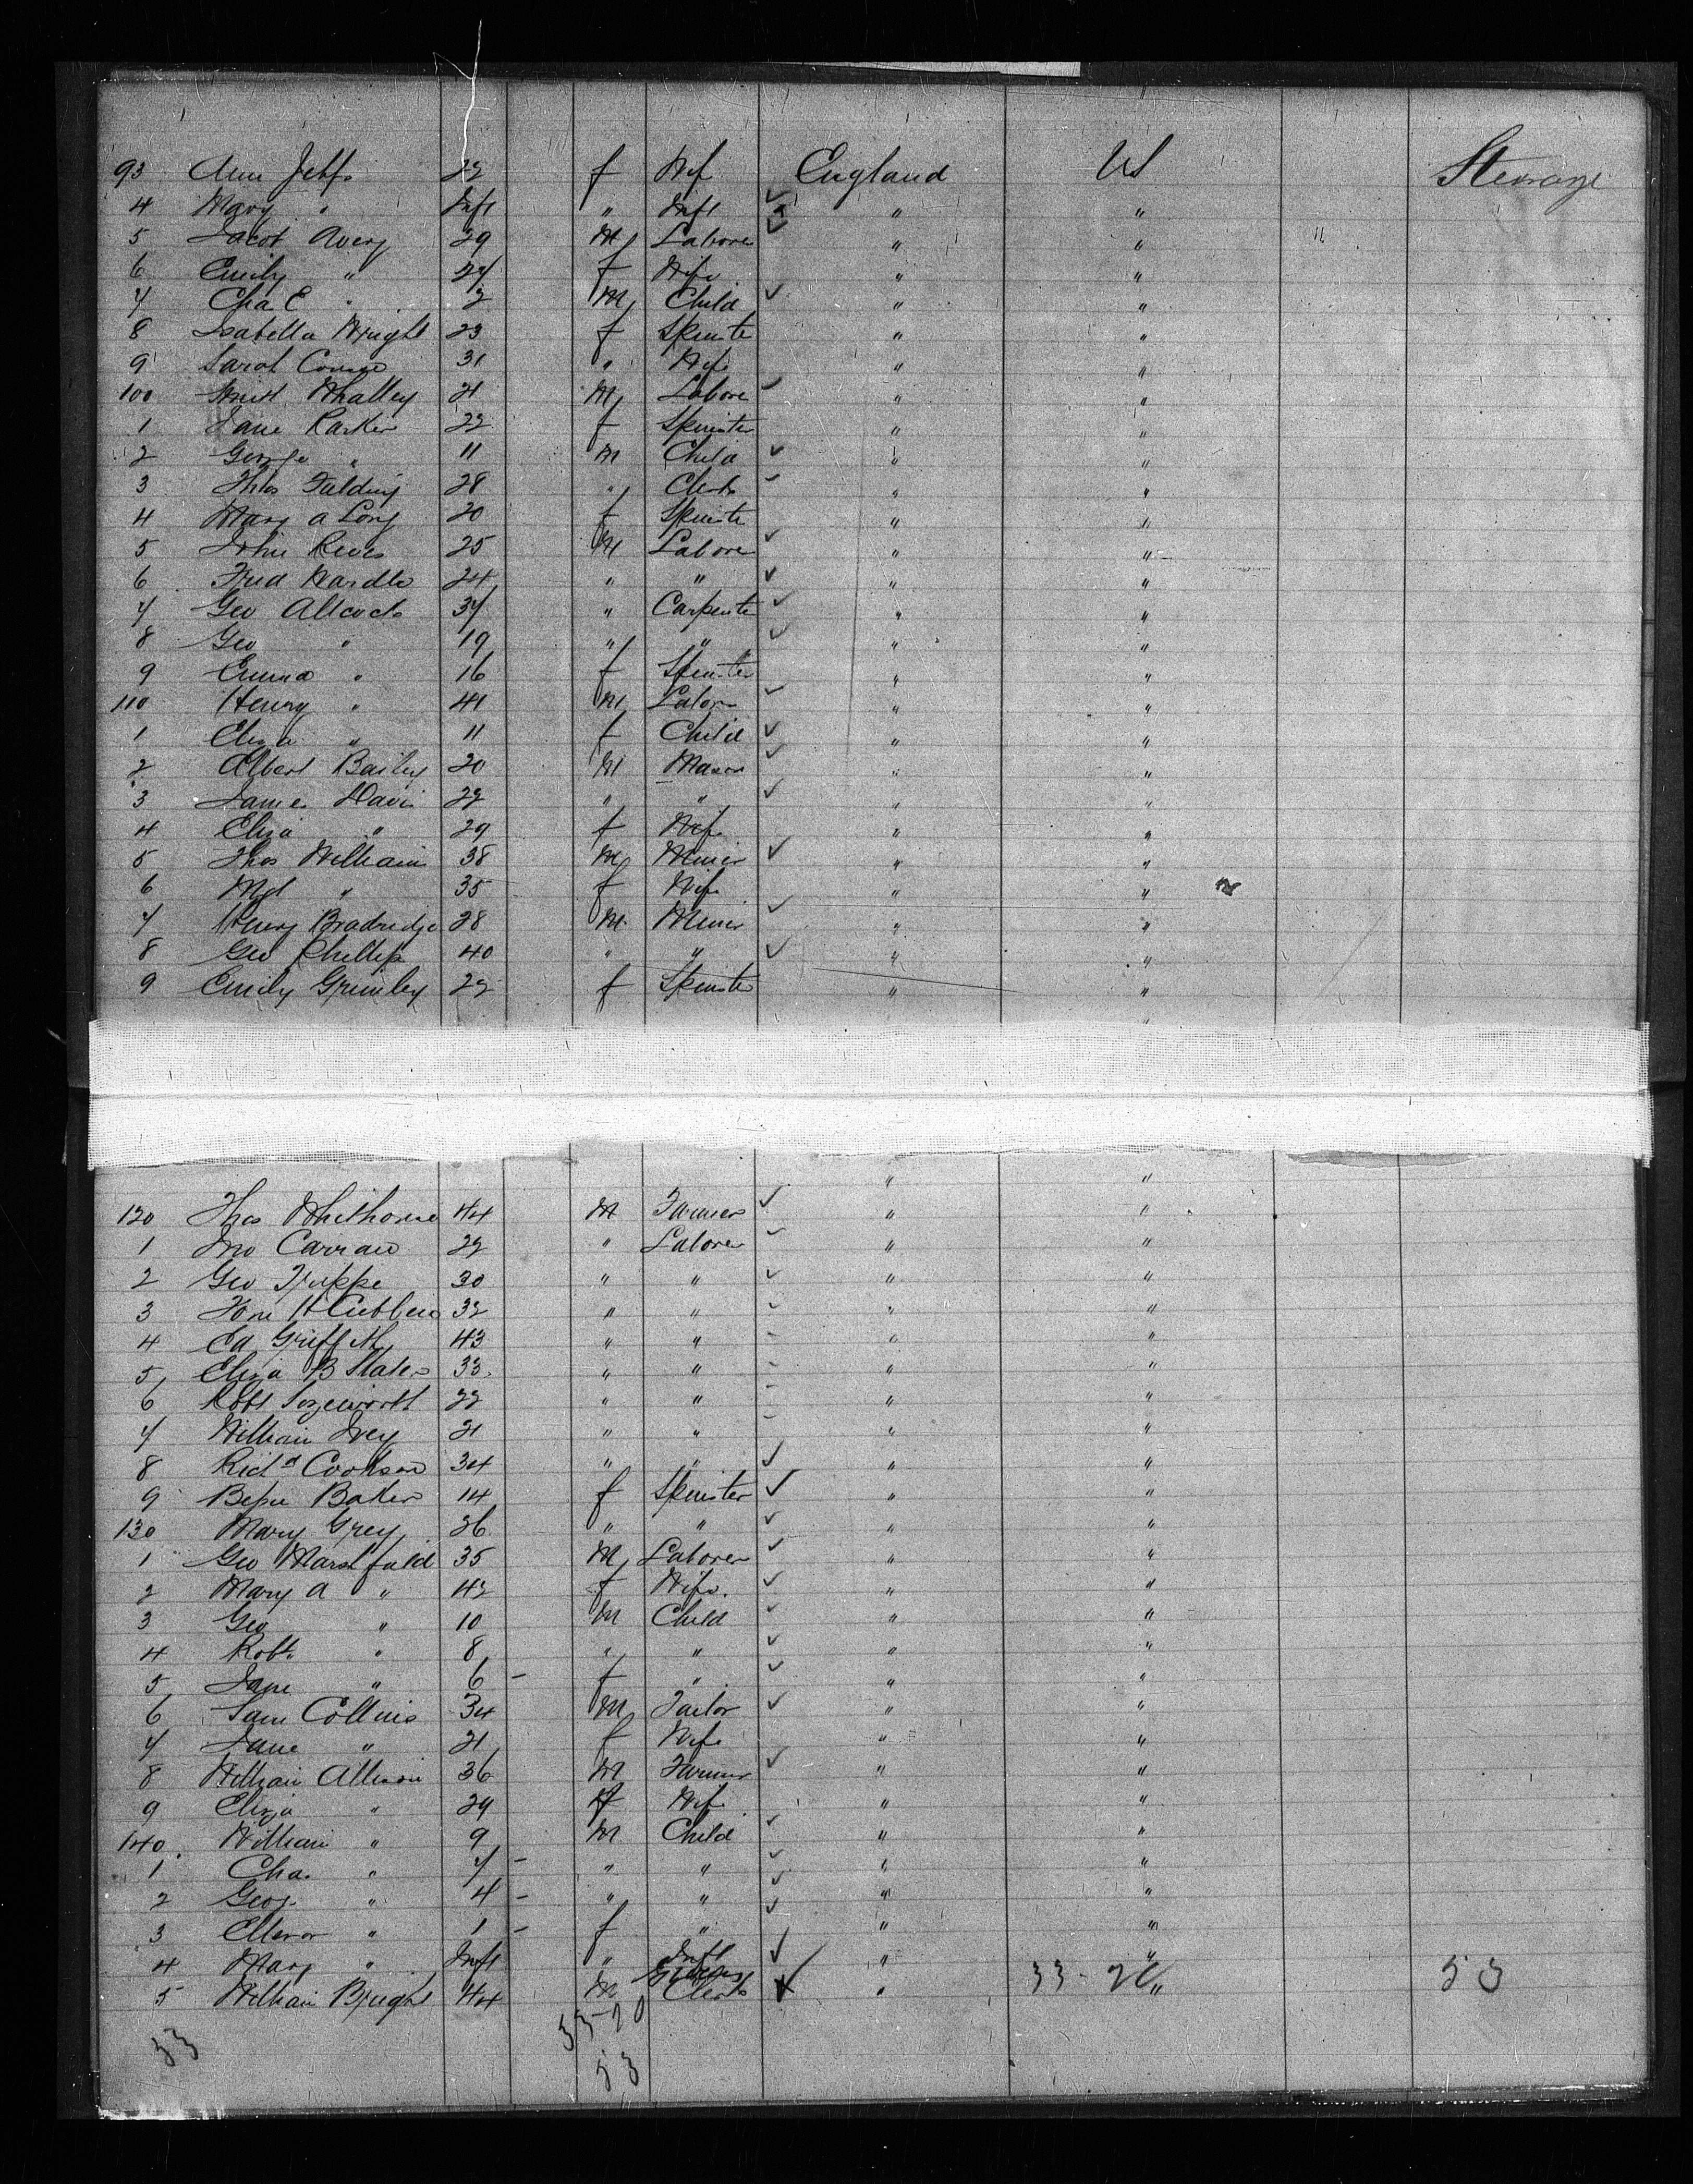 93 Ann Jebfs 22 f Wif England US Steerage
4 Mary " Inft " Inft " "
5 Jacob Avery 29 M Laborer " "
6 Emily " 27 f Wife " "
7 Cha E " 2 M Child " "
8 Isabella Wright 23 f Spinste " "
9 Sarah 31 " Wife " "
100 Whalley 21 M Labore " "
1 Jane Parker 22 f Spinster " "
2 George " 11 M Child " "
3 Thos Falding 28 " Clerk " "
4 Mary A Long 20 f Spinste " "
5 John Reeves 25 M Labore " "
6 Fred Wardle 24 " " " "
7 Geo Allcock 37 " Carpente " "
8 Geo " 19 " " " "
9 Emma " 16 f Spinster " "
110 Henry " 41 M Labor " "
1 Eliza " 11 f Child " "
2 Albert Bailey 20 M Mason " "
3 James Davis 22 " " " "
4 Eliza " 29 f Wife " "
5 Thos William 38 M Miner " "
6 Mgt " 35 f Wife " "
7 Henry Bradridge 28 M Miner " "
8 Geo Phillips 40 " " " "
9 Emily Grimley 22 f Spinste " "
" "
120 Thos Whithorne 44 M Farmer " "
1 Jno Carran 22 " Laborer " "
2 Geo 30 " " " "
3 32 " " " "
4 Ed Griffith 43 " " " "
5 Eliza B Slater 33 " " " "
6 Robt 22 " " " "
7 William Ivey 21 " " " "
8 Richd Cookson 34 " " " "
9 Bessie Baker 14 f Spinster " "
130 Mary Grey 26 " " " "
1 Geo Marshfield 35 M Laborer " "
2 Mary A " 42 f Wife " "
3 Geo " 10 M Child " "
4 Robt " 8 " " " "
5 Jane " 6 - f " " "
6 Sam Collins 34 M Tailor " "
7 Jane " 21 f Wife " "
8 William Allison 36 M Farmer " "
9 Eliza " 29 f Wife " "
140 William " 9 M Child " "
1 Cha. " 7 - " " " "
2 Geog " 4 - " " " "
3 Ellenor " 1 - f " " "
4 Mary " Inft " Inft " "
5 William Bright 44 M Clerk " 33-20 " 53
53 33-20
53